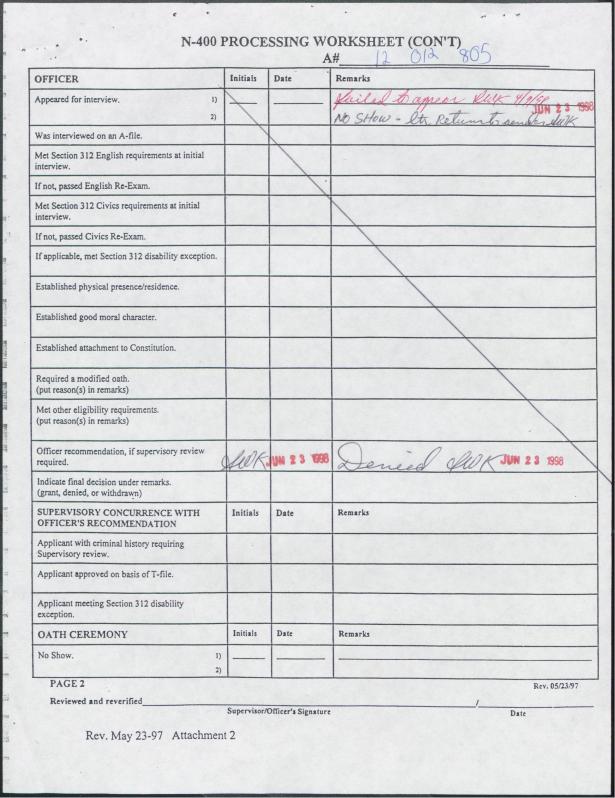 N-400 PROCESSING WORKSHEET (CON'T)
A# 12 012 805
OFFICER Initials Date Remarks
Appeared for interview. 1) Failed to appear SWK 4/9/98
JUN 23 1998
2) NO SHOW - ltr Return to sender SWK
Was interviewed on an A-file.
Met Section 312 English requirements at initial
interview.
If not, passed English Re-Exam.
Met Section 312 Civics requirements at initial
interview.
If not, passed Civics Re-Exam.
If applicable, met Section 312 disability exception.
Established physical presence/residence.
Established good moral character.
Established attachment to Constitution.
Required a modified oath.
(put reason(s) in remarks)
Met other eligibility requirements.
(put reason(s) in remarks)
Officer recommendation, if supervisory review
required. SWK JUN 23 1998 Denied SWK JUN 23 1998
Indicate final decision under remarks.
(grant, denied, or withdrawn)
SUPERVISORY CONCURRENCE WITH
OFFICER'S RECOMMENDATION Initials Date Remarks
Applicant with criminal history requiring
Supervisory review.
Applicant approved on basis of T-file.
Applicant meeting Section 312 disability
exception.
OATH CEREMONY Initials Date Remarks
No Show. 1)
2)
PAGE 2 Rev. 05/23/97
Reviewed and reverified /
Supervisor/Officer's Signature Date
Rev. May 23-97 Attachment 2